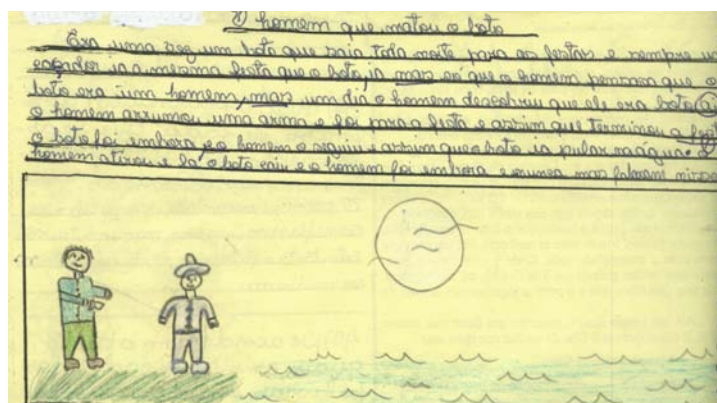 O homem que matou o boto
Era uma vez um boto que saia toda noite para as festas e sempre um
ia a mesma festa que o boto ia mas só que o homem pensava que o
boto era um homem, mas um dia o homem descobriu que ele era boto ai
o homem arrumou uma arma e foi para a festa e assim que terminou a
o boto foi embora, e o homem o seguiu e assim que o boto ia pular na água o
homem atirou e la o boto caiu e o homem foi embora e nunca mas falaram nisso